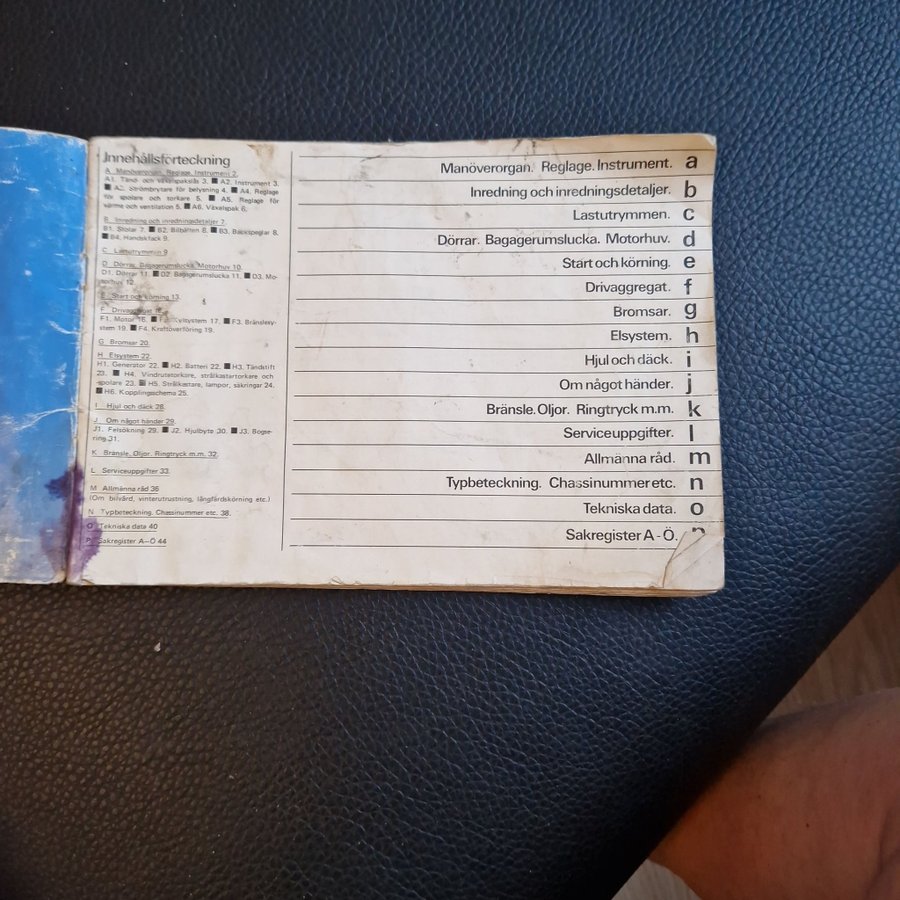 Innehållsförteckning
A Manöverorgan. Reglage. Instrument 2.
A1. Tänd- och växelspakslås 3. ■ A2. Instrument 3.
■ A3. Strömbrytare för belysning 4. ■ A4. Reglage
för spolare och torkare 5. ■ A5. Reglage för
värme och ventilation 5. ■ A6. Växelspak 6.
B Inredning och inredningsdetaljer 7.
B1. Stolar 7. ■ B2. Bilbälten 8. ■ B3. Backspeglar 8.
■ B4. Handskfack 9.
C Lastutrymmen 9
D Dörrar. Bagagerumslucka. Motorhuv 10.
D1. Dörrar 11. ■ D2. Bagagerumslucka 11. ■ D3. Mo-
torhuv 12.
E Start och körning 13.
F Drivaggregat 16.
F1. Motor 16. ■ Kylsystem 17. ■ F3. Bränslesy-
stem 19. ■ F4. Kraftöverföring 19.
G Bromsar 20.
H Elsystem 22.
H1. Generator 22. ■ H2. Batteri 22. ■ H3. Tändstift
23. ■ H4. Vindrutetorkare, strålkastartorkare och
-spolare 23. ■ H5. Strålkastare, lampor, säkringar 24.
■ H6. Kopplingsschema 25.
I Hjul och däck 28.
J Om något händer 29.
J1. Felsökning 29. ■ J2. Hjulbyte 30. ■ J3. Bogse-
ring 31.
K Bränsle. Oljor. Ringtryck m.m. 32.
L Serviceuppgifter 33.
M Allmänna råd 36
(Om bilvård, vinterutrustning, långfärdskörning etc.)
N Typbeteckning. Chassinummer etc. 38.
O Tekniska data 40
P Sakregister A–Ö 44
Manöverorgan. Reglage. Instrument. a
Inredning och inredningsdetaljer. b
Lastutrymmen. c
Dörrar. Bagagerumslucka. Motorhuv. d
Start och körning. e
Drivaggregat. f
Bromsar. g
Elsystem. h
Hjul och däck. i
Om något händer. j
Bränsle. Oljor. Ringtryck m.m. k
Serviceuppgifter. l
Allmänna råd. m
Typbeteckning. Chassinummer etc. n
Tekniska data. o
Sakregister A-Ö.